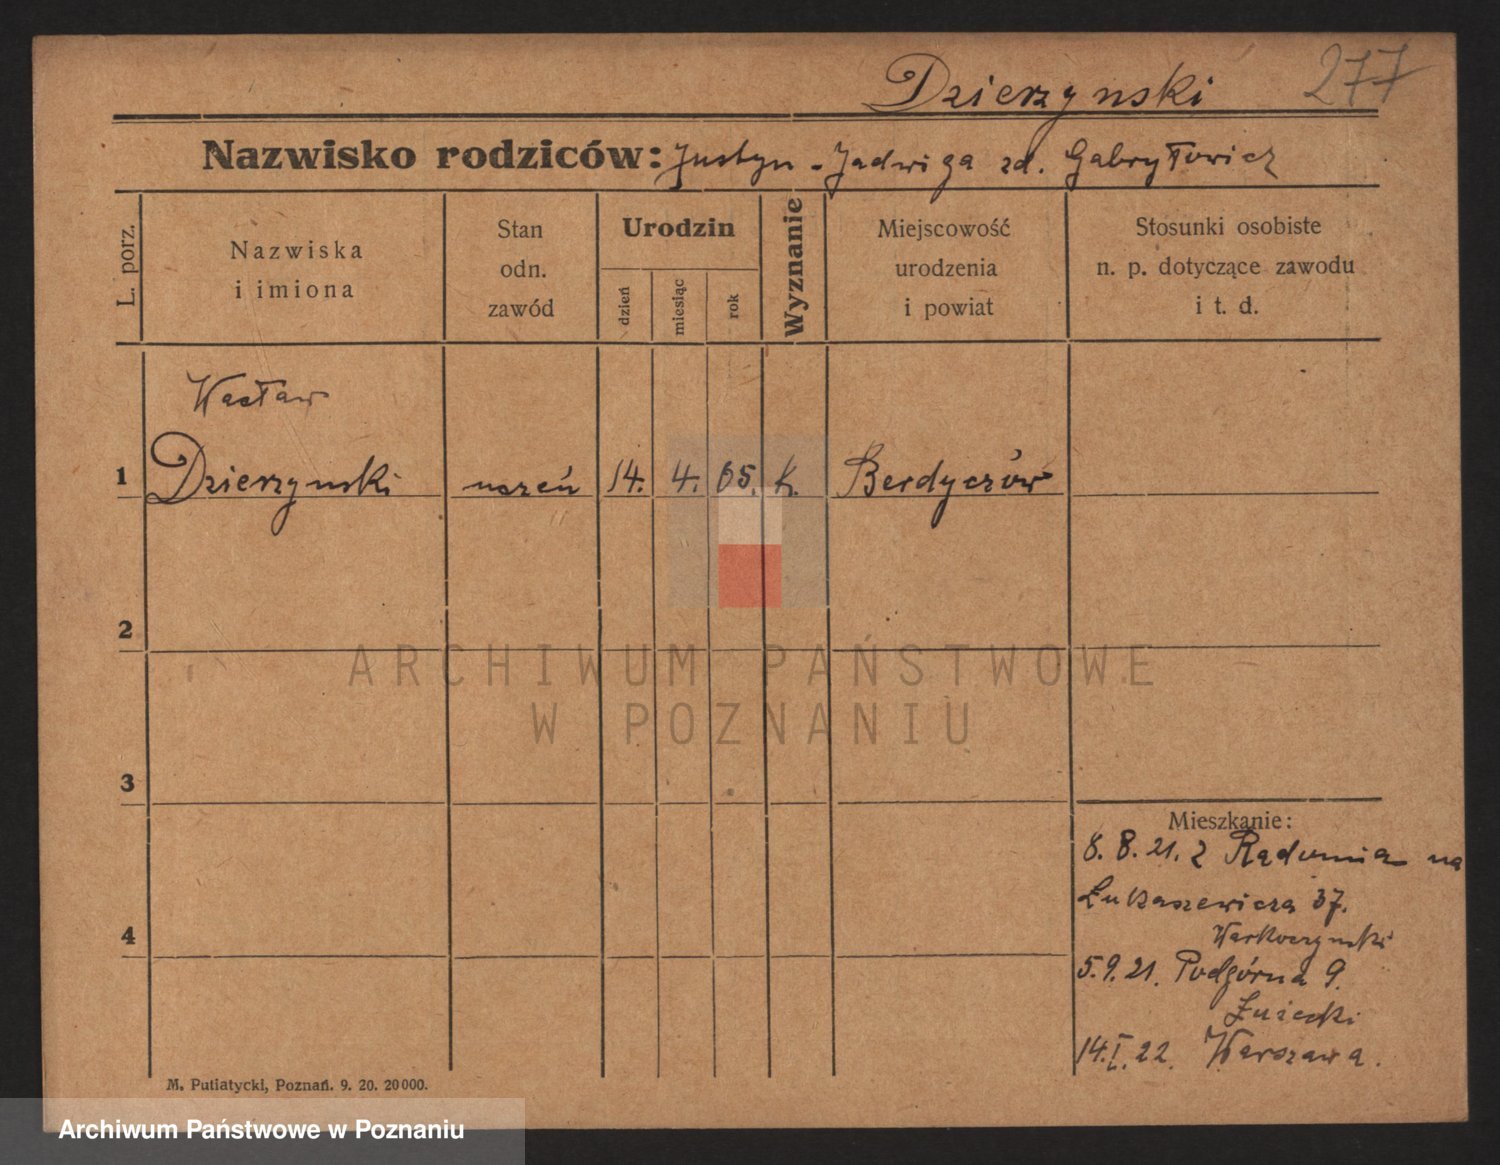 Dzierzynski 277
Nazwisko rodziców: Justyn - Jadwiga zd. Gabryłowicz
L. porz.
Nazwiska
i imiona
Stan
odn.
zawód
Urodzin
dzień
miesiąc
rok
Wyznanie
Miejscowość
urodzenia
i powiat
Stosunki osobiste
n. p. dotyczące zawodu
i t. d.
Wacław
1 Dzierzynski uczeń 14. 4. 05. k. Berdyczów
2
ARCHIWUM PAŃSTWOWE
W POZNANIU
3
Mieszkanie:
8. 8. 21. z Radomia na
Łukaszewicza 37.
4
Warkoczynski
5. 9. 21. Podgórna 9.
14. I. 22. Warszawa.
M. Putiatycki, Poznań. 9. 20. 20000.
Archiwum Państwowe w Poznaniu